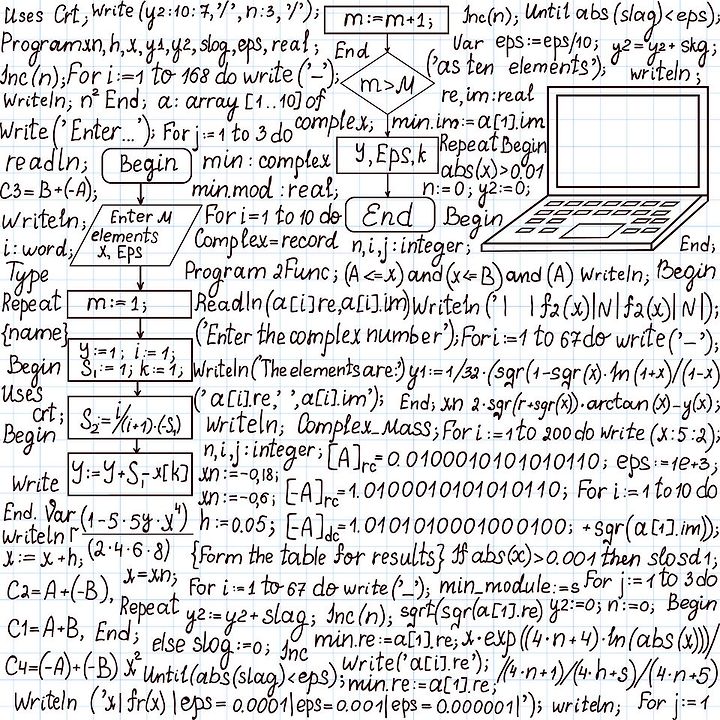 Uses Crt, Write (y2:10:7,'/', n:3, '/'); m:=m+1; Inc(n); Until abs (slag)<eps);
Program xn, h, x, y1, y2, slog, eps, real; End Var eps:=eps/10; y2=y2+ skg;
Inc(n); For i:=1 to 168 do write ('–'); m>M ('as ten elements'); writeln;
Writeln; n² End; a: array [1..10] of re, im:real
Write('Enter...'); For j:=1 to 3 do complex; min.im:=a[1].im
readln; Begin min: complex Y, Eps, k Repeat Begin
abs(x)>0.01
C3=B+(-A); min.mod :real; n:=0; y2:=0;
Writeln; Enter M elements x, Eps For i=1 to 10 do End Begin
i: word; Complex=record n,i,j:integer; End;
Type Program 2Func; (A<=x) and (x<=B) and (A) Writeln; Begin
Repeat m:=1; Readln(a[i]re,a[i].im) Writeln ('| | f2(x)|N|f2(x)|N|);
{name} ('Enter the complex number'); For i:=1 to 67 do write('–');
y:=1; i:=1;
Begin S1:=1; k:=1; Writeln('The elements are:') y1:=1/32·(sgr(1-sgr(x)·ln(1+x)/(1-x)
Uses ('a[i].re',' ',a[i].im'); End; xn 2·sgr(r+sgr(x))·arctan(x)-y(x);
Crt; S2=i/(i+1)·(-S1) writeln; Complex_Mass; For i:=1 to 200 do Write (x:5:2);
Begin
n,i,j:integer; [A]rc=0.0100010101010110; eps:=1e+3;
Write Y:=Y+S1-x[k] xn:=-0,18;
xn:=-0,6; [-A]rc=1.0100010101010110; For i:=1 to 10 do
End. Var (1-5·5y·x⁴) h:=0.05; [-A]dc=1.0101010001000100; +sgr(a[1].im));
writeln
x:=x+h; (2·4·6·8) {Form the table for results} If abs(x)>0.001 then slosd1;
x=xn;
C2=A+(-B), For i:=1 to 67 do write('–'); min_module:=s For j:=1 to 3 do
Repeat y2:=y2+slag; Inc(n); sqrt(sgr(a[1].re) y2:=0; n:=0; Begin
C1=A+B, End; else slog:=0; Inc min.re:=a[1].re; x·exp((4·n+4)·ln(abs(x)))/
C4=(-A)+(-B) x² Until(abs(slag)<eps); Write('a[i].re'); /(4·n+1)/(4·h+s)/(4·n+5)
min.re:=a[1].re;
Writeln ('x|fr(x)|eps=0.0001|eps=0.001|eps=0.000001|'); writeln; For j:=1